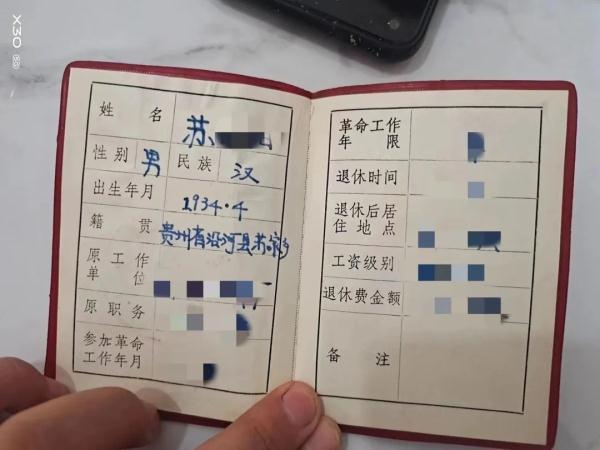 X30
姓 名 苏
性别 男 民族 汉
出生年月 1934.4
籍 贯 贵州省沿河县苏家乡
原工作单位
原职务
参加革命工作年月
革命工作年 限
退休时间
退休后居住地点
工资级别
退休费金额
备 注